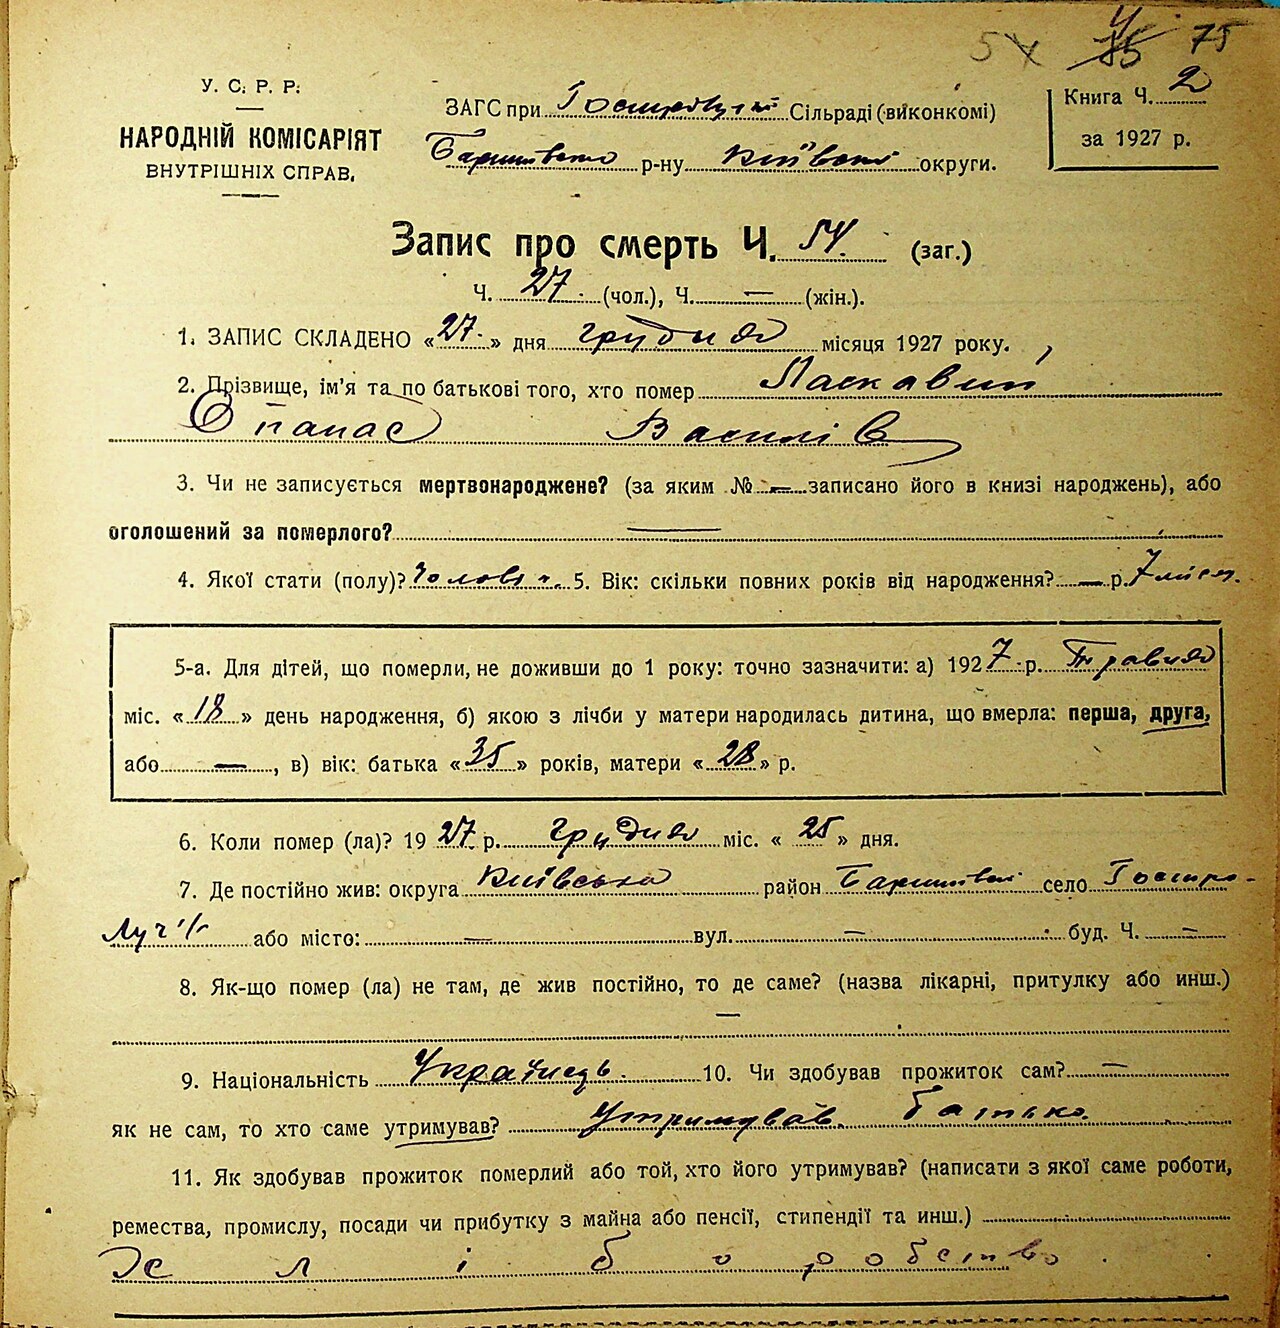 54 75
У. С. Р. Р.
НАРОДНІЙ КОМІСАРІЯТ
ВНУТРІШНІХ СПРАВ.
ЗАГС при Гостролуцькій Сільраді (виконкомі)
Баришівського р-ну Київської округи.
Книга Ч. 2
за 1927 р.
Запис про смерть Ч. 54. (заг.)
Ч. 27 (чол.), Ч. — (жін.).
1. ЗАПИС СКЛАДЕНО «27» дня грудня місяця 1927 року.
2. Прізвище, ім'я та по батькові того, хто помер Ласкавий
Опанас Василів
3. Чи не записується мертвонароджене? (за яким № — записано його в книзі народжень), або
оголошений за померлого? —
4. Якої стати (полу)? Чолов. 5. Вік: скільки повних років від народження? — р. 7 міся.
5-а. Для дітей, що померли, не доживши до 1 року: точно зазначити: а) 1927 р. Травня
міс. «18» день народження, б) якою з лічби у матери народилась дитина, що вмерла: перша, друга,
або —, в) вік: батька «35» років, матери «28» р.
6. Коли помер (ла)? 1927 р. грудня міс. «25» дня.
7. Де постійно жив: округа Київська район Баришівськ село Гостро-
Луччя або місто: — вул. — буд. Ч. —
8. Як-що помер (ла) не там, де жив постійно, то де саме? (назва лікарні, притулку або инш.)
—
9. Національність Українець. 10. Чи здобував прожиток сам? —
як не сам, то хто саме утримував? Утримував батько.
11. Як здобував прожиток померлий або той, хто його утримував? (написати з якої саме роботи,
ремества, промислу, посади чи прибутку з майна або пенсії, стипендії та инш.)
Хліборобство.